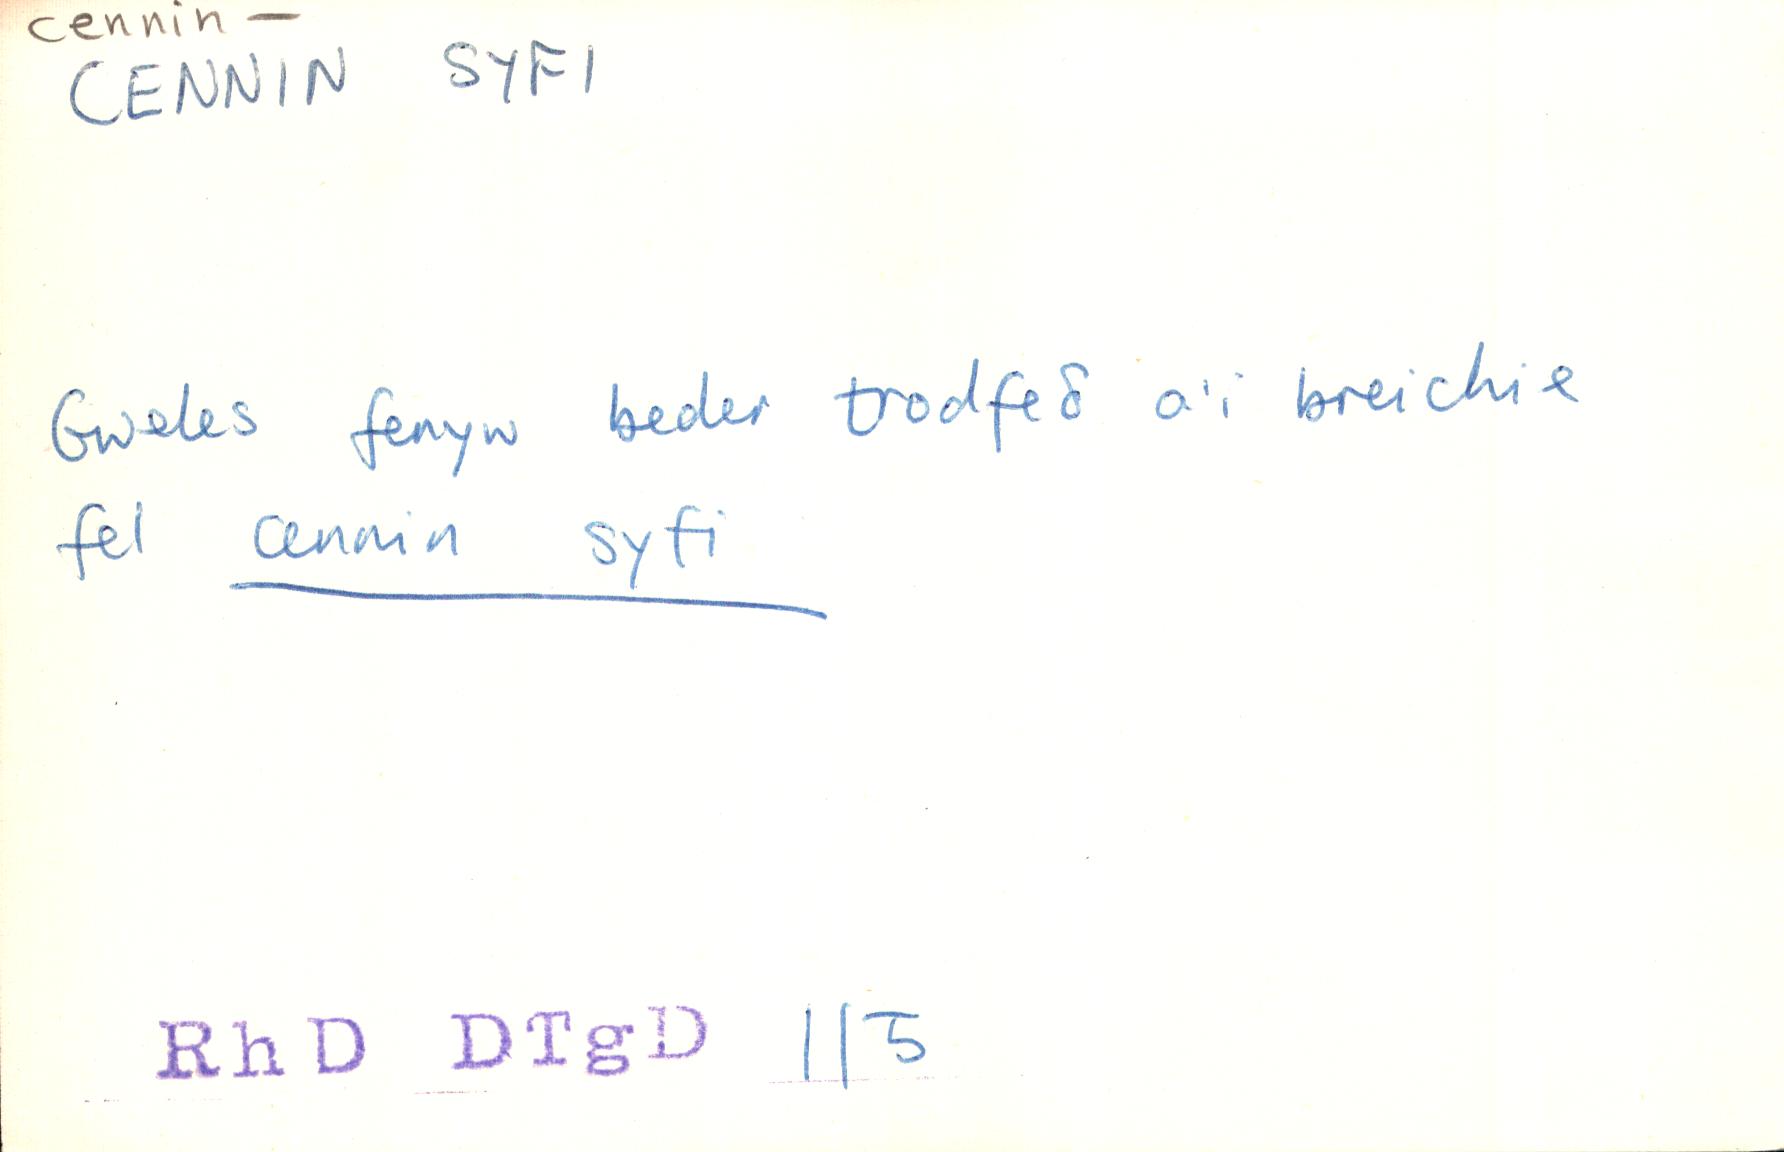 cennin –
CENNIN SYFI
Gweles fenyw beder trodfeδ a'i breichie
fel cennin syfi
RhD DTgD 115